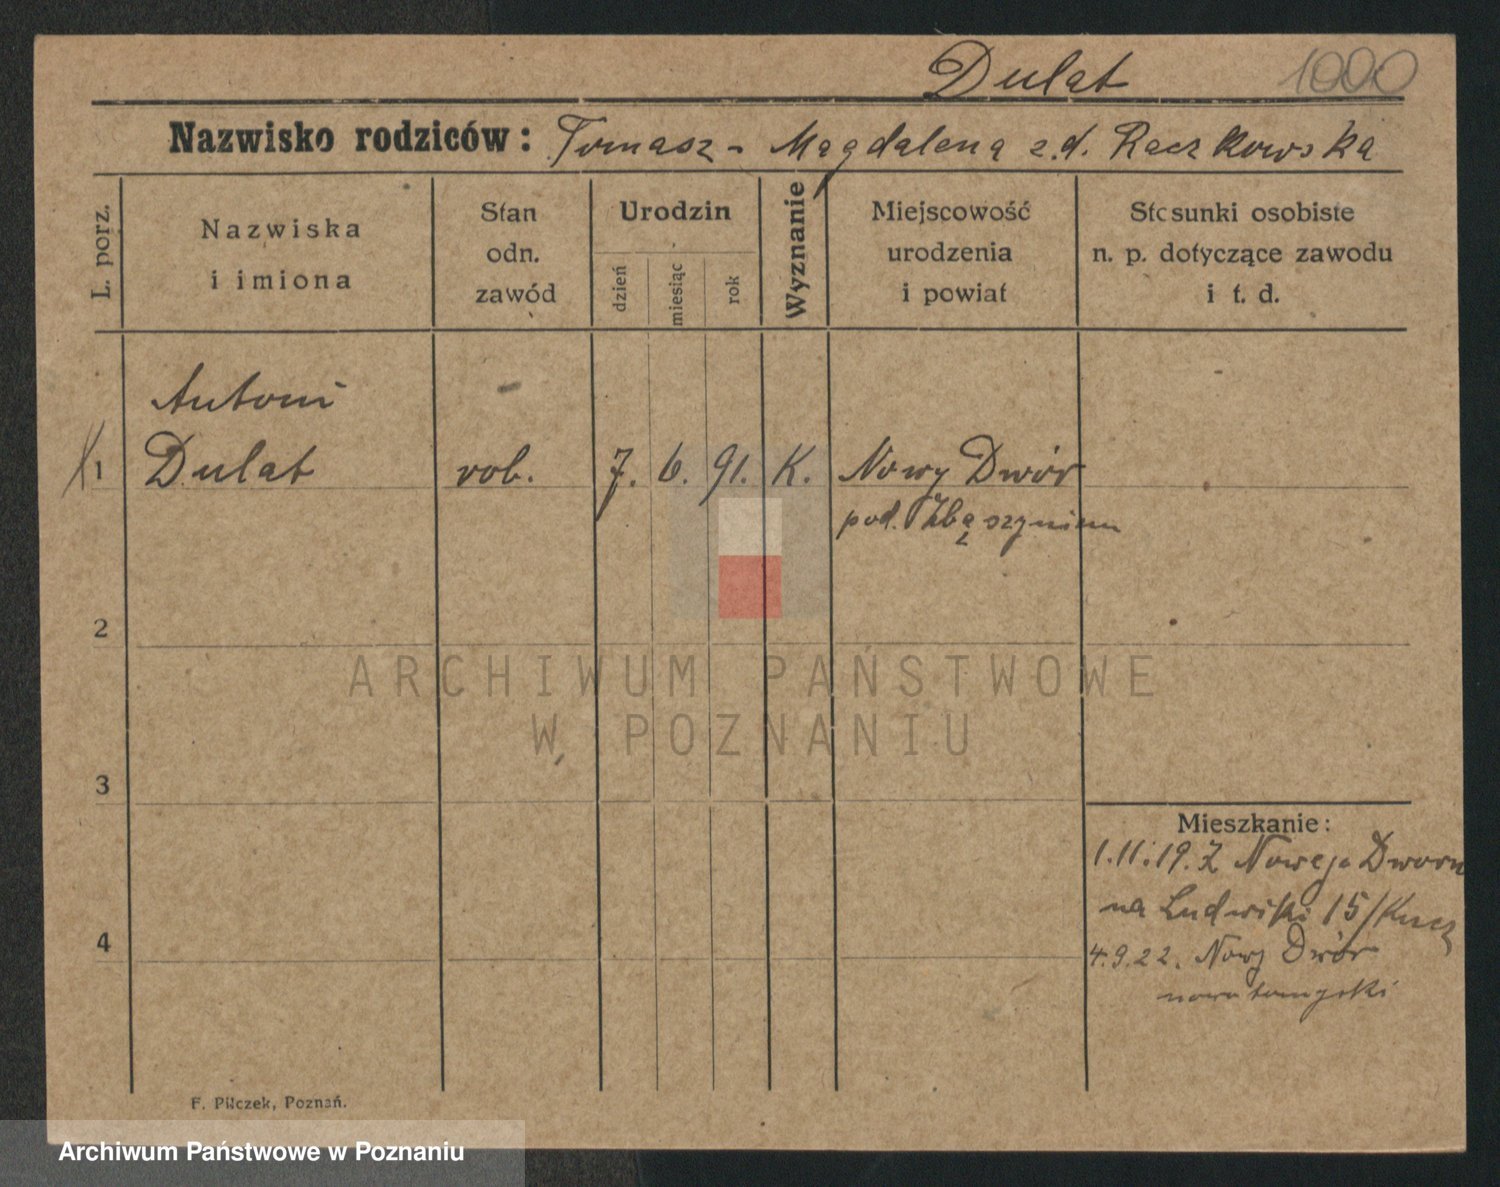 Dulat 1000
Nazwisko rodziców: Tomasz - Magdalena z.d. Raczkowska
L. porz.
Nazwiska
i imiona
Stan
odn.
zawód
Urodzin
dzień
miesiąc
rok
Wyznanie
Miejscowość
urodzenia
i powiat
Stosunki osobiste
n. p. dotyczące zawodu
i t. d.
Antoni
1 Dulat rob. 7. 6. 91. K. Nowy Dwór
pod. Zbąszyniem
2
ARCHIWUM PAŃSTWOWE
W POZNANIU
3
Mieszkanie:
1.11.19. Z Nowego Dworu
na Ludwiki 15/
4
4.9.22. Nowy Dwór
nowotomyski
F. Pilczek, Poznań.
Archiwum Państwowe w Poznaniu